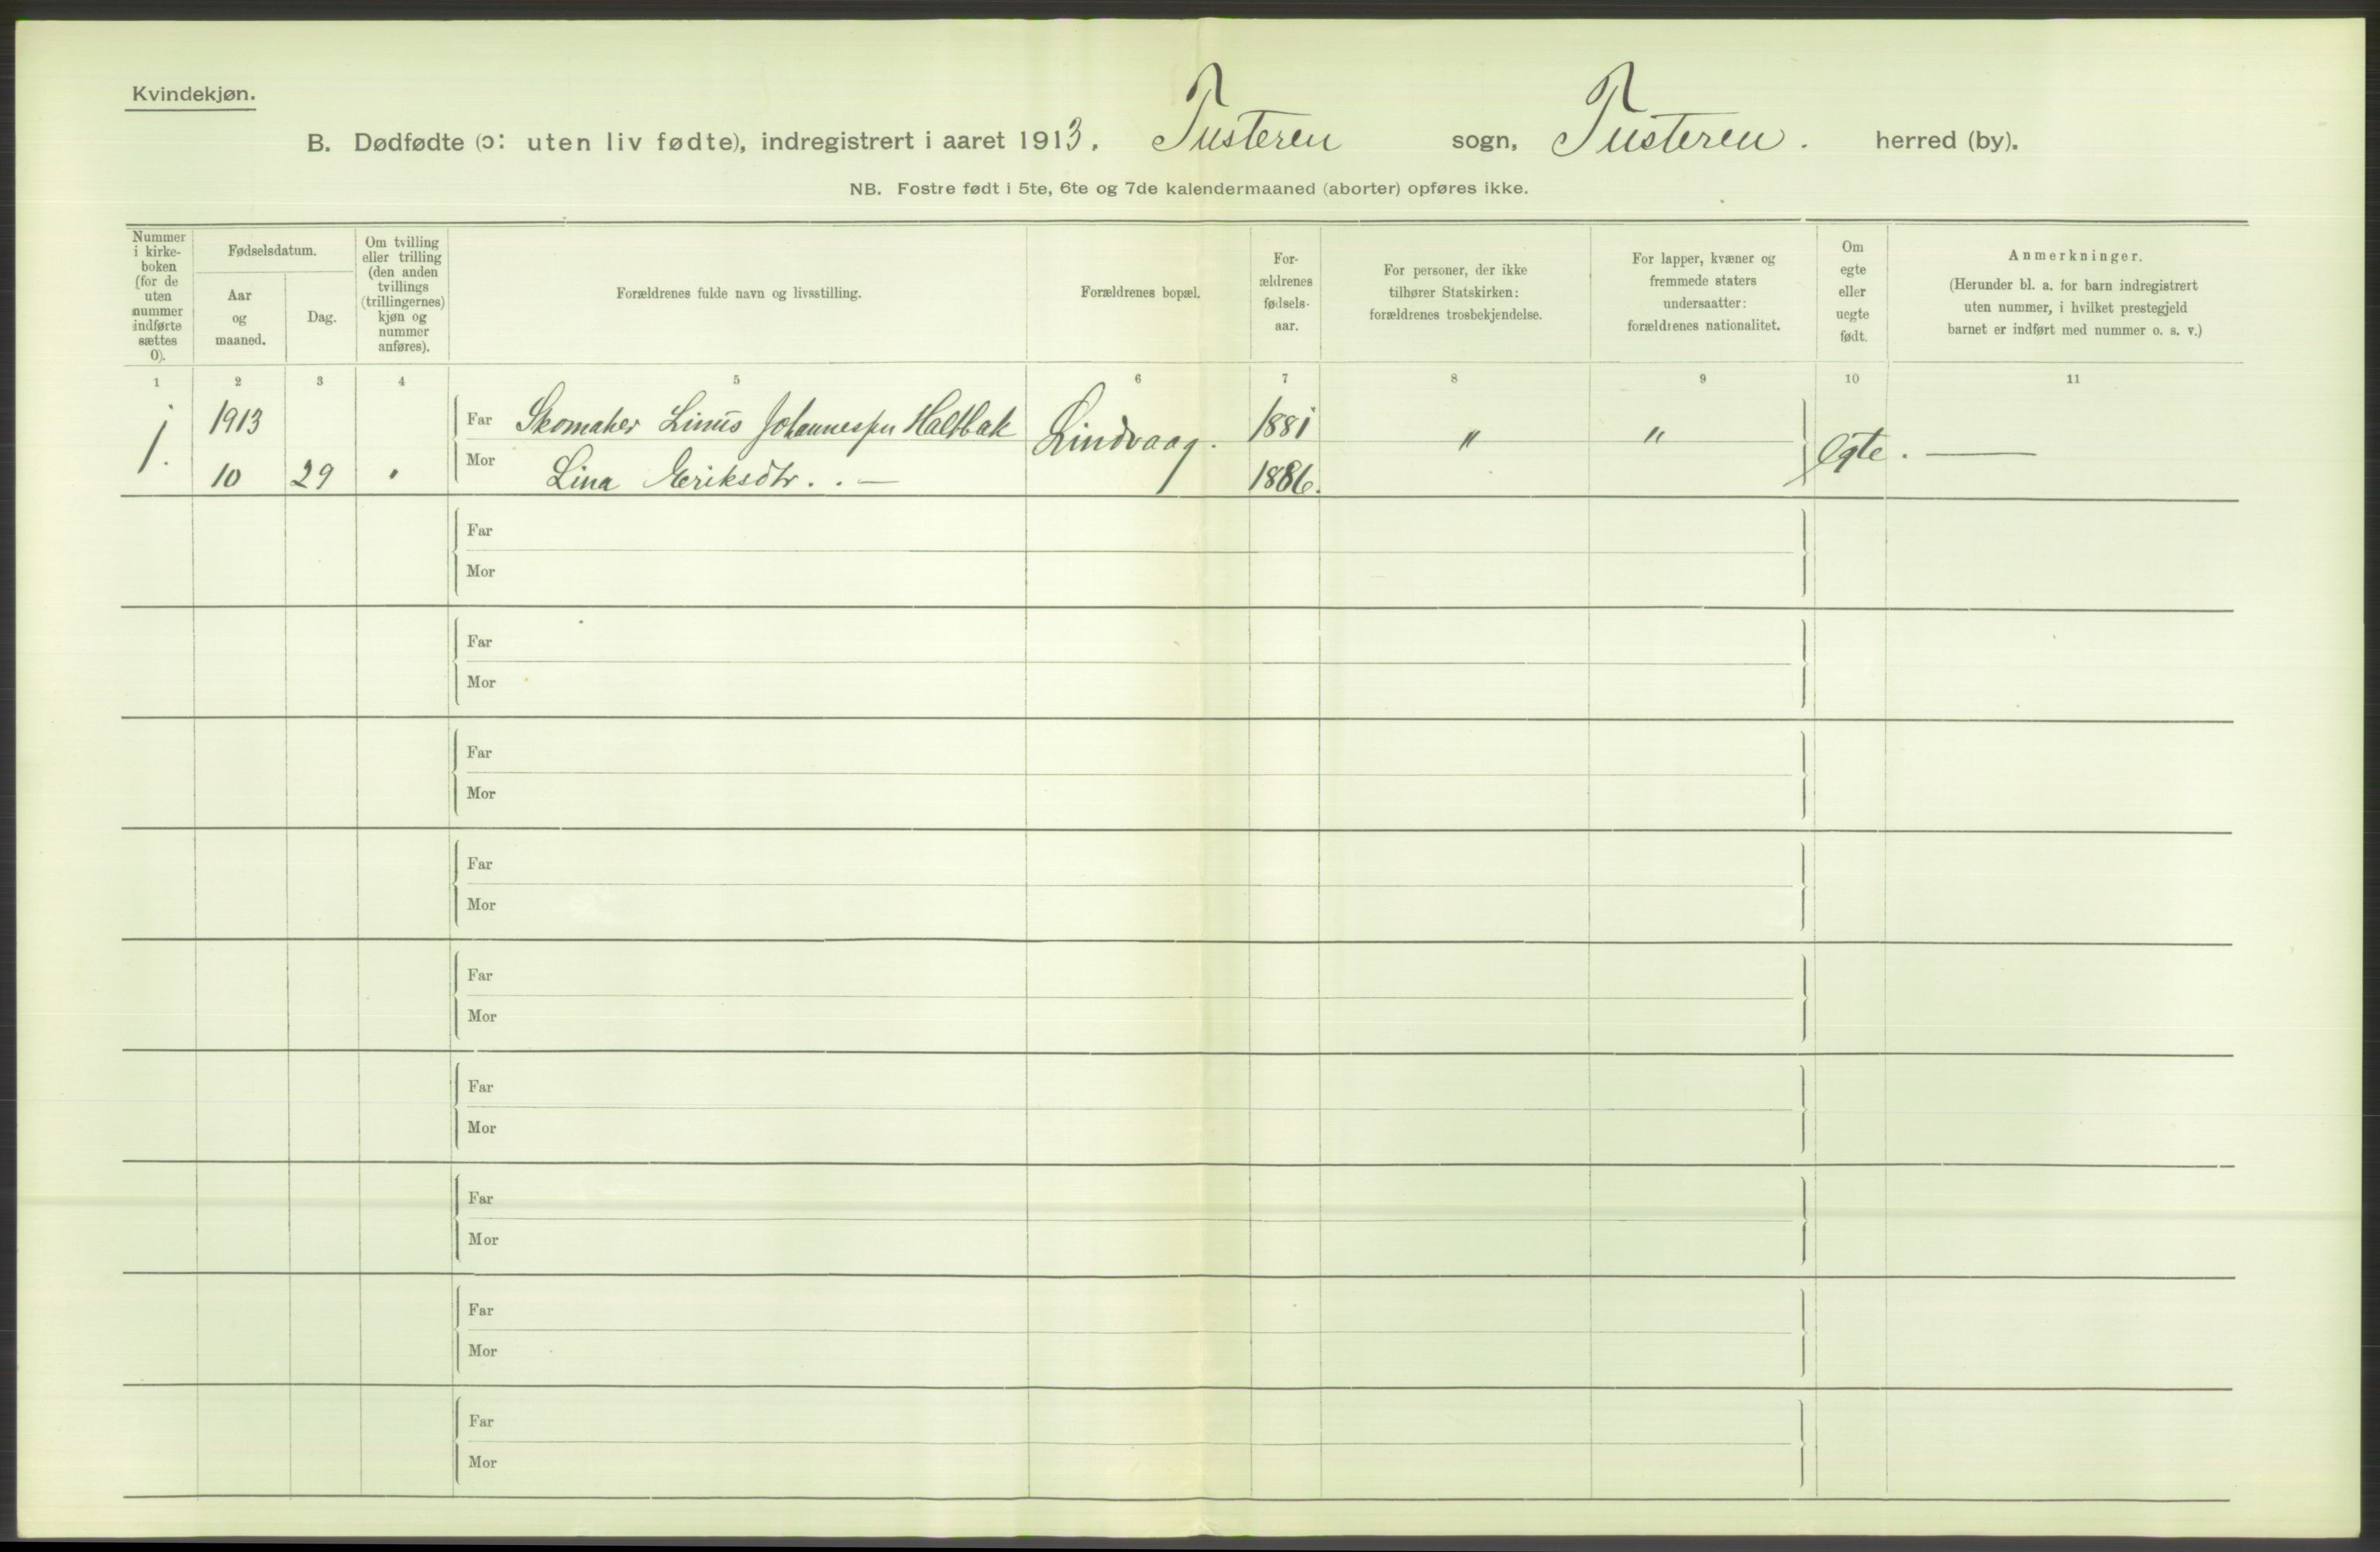 Kvindekjøn.
B. Dødfødte (ɔ: uten liv fødte), indregistrert i aaret 1913. Tusteren sogn, Tusteren. herred (by).
NB. Fostre født i 5te, 6te og 7de kalendermaaned (aborter) opføres ikke.
Nummer
i kirke-
boken
(for de
uten
nummer
indførte
sættes
0).
Fødselsdatum.
Aar
og
maaned.
Dag.
Om tvilling
eller trilling
(den anden
tvillings
(trillingernes)
kjøn og
nummer
anføres).
Forældrenes fulde navn og livsstilling.
Forældrenes bopæl.
For-
ældrenes
fødsels-
aar.
For personer, der ikke
tilhører Statskirken:
forældrenes trosbekjendelse.
For lapper, kvæner og
fremmede staters
undersaatter:
forældrenes nationalitet.
Om
egte
eller
uegte
født.
Anmerkninger.
(Herunder bl. a. for barn indregistrert
uten nummer, i hvilket prestegjeld
barnet er indført med nummer o. s. v.)
1 2 3 4 5 6 7 8 9 10 11
1. 1913 Far Skomaker Linus Johannesen Haltbak Lindvaag. 1881 " " Egte. —
10 29 " Mor Lina Eriksdtr. . — 1886.
Far
Mor
Far
Mor
Far
Mor
Far
Mor
Far
Mor
Far
Mor
Far
Mor
Far
Mor
Far
Mor